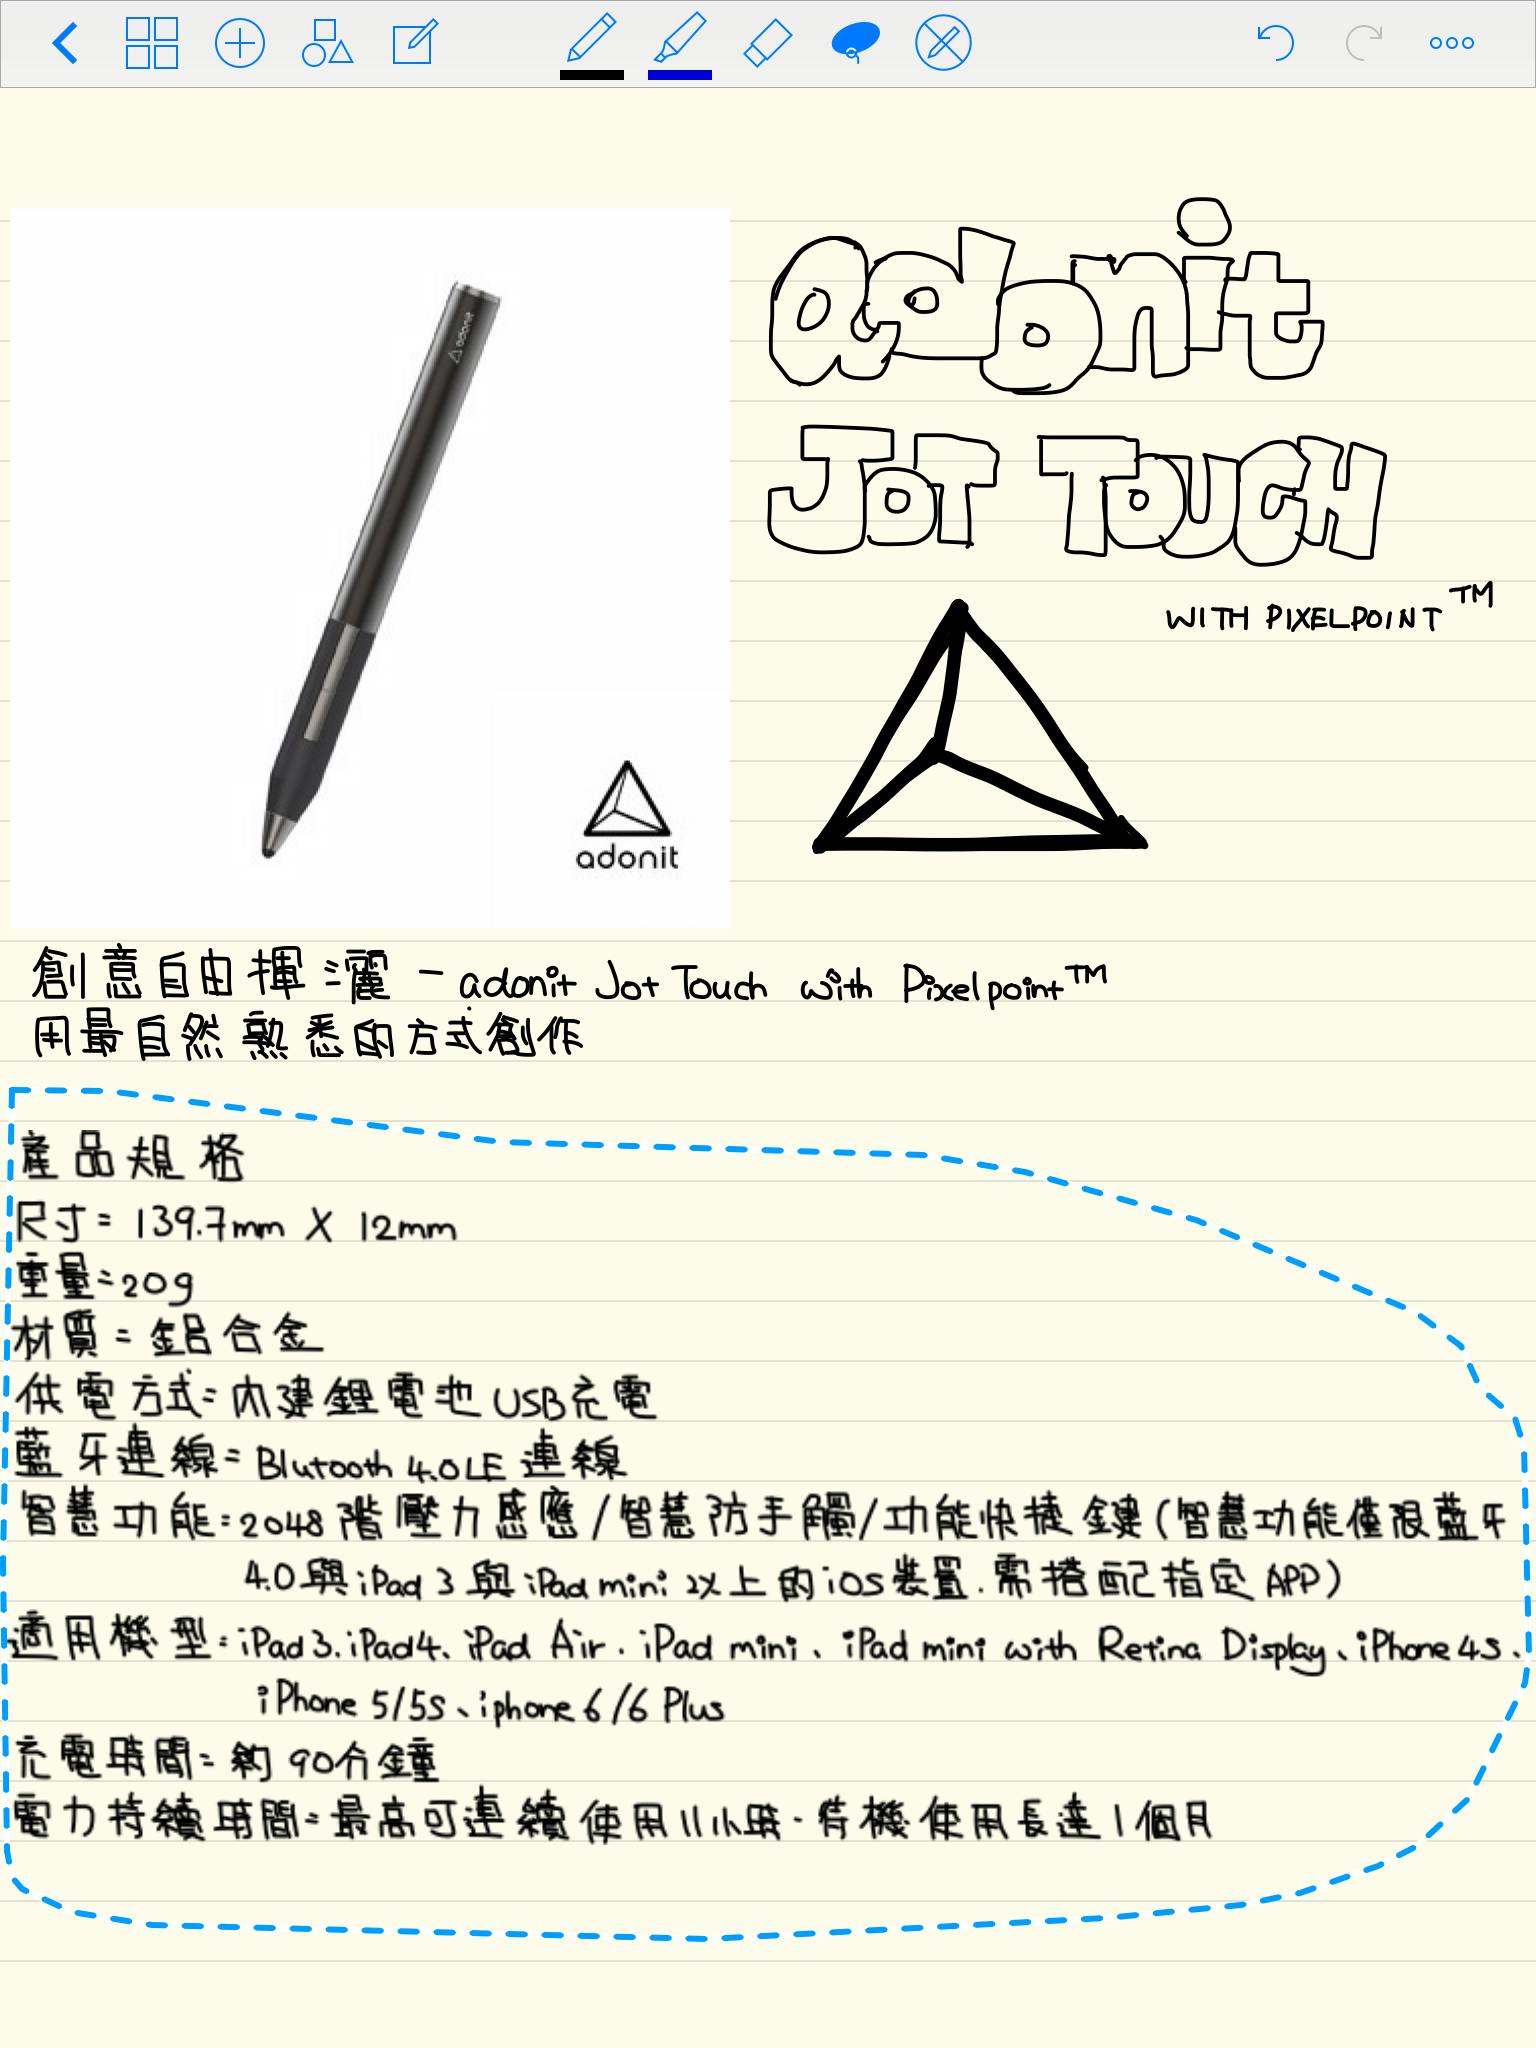 adonit
JOT TOUCH
WITH PIXELPOINT™
adonit
adonit
創意自由揮灑 - adonit Jot Touch with Pixelpoint™
用最自然熟悉的方式創作
產品規格
尺寸= 139.7mm X 12mm
重量=20g
材質=鋁合金
供電方式=內建鋰電池USB充電
藍牙連線=Blutooth 4.0LE 連線
智慧功能=2048階壓力感應/智慧防手觸/功能快捷鍵(智慧功能僅限藍牙
4.0與iPad 3與iPad mini 以上的iOS裝置.需搭配指定APP)
適用機型=iPad3.iPad4、iPad Air. iPad mini、iPad mini with Retina Display、iPhone 4s.
iPhone 5/5s、iphone 6/6 Plus
充電時間=約90分鐘
電力持續時間=最高可連續使用11小時.待機使用長達1個月